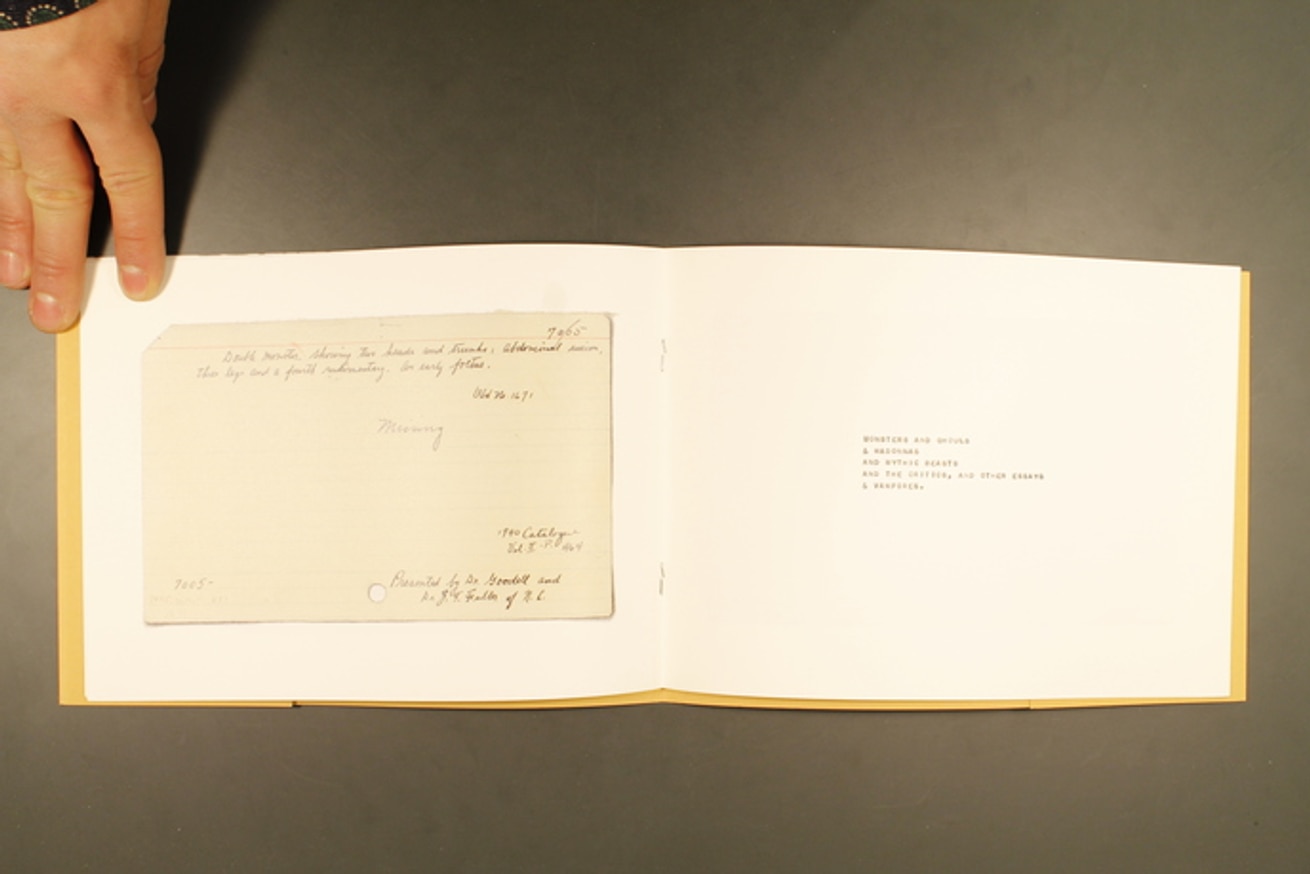 7065
Double monster, showing two heads and trunks; abdominal union,
three legs and a fourth rudimentary. An early foetus.
Old No 1671
Missing
1940 Catalogue
Vol. II P.
7005-
Presented by Dr. Goodell and
Dr. J. F. of N. C
MONSTERS AND GHOULS
& MADONNAS
AND MYTHIC BEASTS
AND THE CRITICS, AND OTHER ESSAYS
& VAMPIRES.